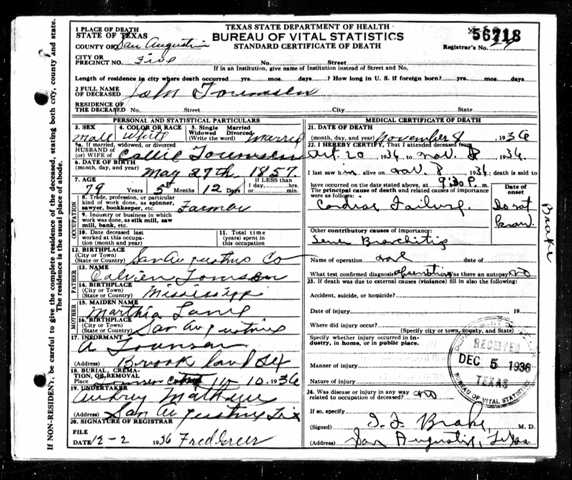 TEXAS STATE DEPARTMENT OF HEALTH
BUREAU OF VITAL STATISTICS
STANDARD CERTIFICATE OF DEATH
56718
Registrar's No.
1 PLACE OF DEATH
STATE OF TEXAS
COUNTY OF San Augustin
CITY OR
PRECINCT NO. Five No. Street
If in an Institution, give name of Institution instead of Street and No.
Length of residence in city where death occurred yrs. mos. days. How long in U. S. if foreign born? yrs. mos. days
2 FULL NAME
OF DECEASED John
RESIDENCE OF
THE DECEASED No. Street City State
PERSONAL AND STATISTICAL PARTICULARS
3. SEX 4. COLOR OR RACE 5. Single Married
Widowed Divorced
(Write the word)
male White Married
5a. If married, widowed, or divorced
HUSBAND of
(or) WIFE of Callie
6. DATE OF BIRTH
(month, day, and year) May 27th, 1857
7. AGE IF LESS than
1 day, hrs.
79 Years 5 Months 12 Days or min.
OCCUPATION
8. Trade, profession, or particular
kind of work done, as spinner,
sawyer, bookkeeper, etc. Farmer
9. Industry or business in which
work was done, as silk mill, saw
mill, bank, etc.
10. Date deceased last worked
at this occupation
(month and year)
11. Total time
(years) spent in
this occupation
12. BIRTHPLACE
(City or Town)
(State or Country) San Augustine Co
FATHER
13. NAME
14. BIRTHPLACE
(City or Town)
(State or Country) Mississippi
MOTHER
15. MAIDEN NAME
Martha Lane
16. BIRTHPLACE
(City or Town)
(State or Country) San Augustine
17. INFORMANT
(Address)
18. BURIAL, CREMA-
TION, OR REMOVAL
Place Date 11-10-1936
19. UNDERTAKER
Audrey
(Address) San Augustine Tex
20. SIGNATURE OF REGISTRAR
FILE
DATE 12-2 1936 Fred Greer
MEDICAL CERTIFICATE OF DEATH
21. DATE OF DEATH
(month, day, and year) November 8, 1936
22. I HEREBY CERTIFY, That I attended deceased from
Oct. 20 1936 to Nov. 8 1936.
I last saw alive on Nov. 8 1936 death is said to
have occurred on the date stated above, at 9:30 P. m.
The principal cause of death and related causes of importance
were as follows:
Date of
onset
Cardiac Failure
Do not
know
Other contributory causes of importance:
Bronchitis
Name of operation
What test confirmed diagnosis? Was there an autopsy? no
23. If death was due to external causes (violence) fill in also the following:
Accident, suicide, or homicide?
Date of injury 19
Where did injury occur?
(Specify city or town, county, and State)
Specify whether injury occurred in
industry, in home, or in public place.
Manner of injury
Nature of injury
24. Was disease or injury in any way
related to occupation of deceased? no
If so, specify
(Signed) M. D.
(Address) San Augustine, Texas
RECEIVED
DEC 5 1936
TEXAS
BUREAU OF VITAL STATISTICS
IF NON-RESIDENT, be careful to give the complete residence of the deceased, stating both city, county and state.
The residence is the usual place of abode.